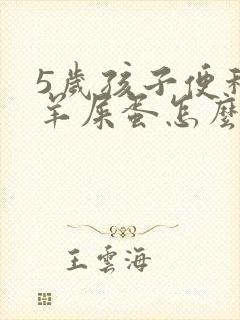 5歲孩子便秘
羊屎蛋怎麼
王雲海